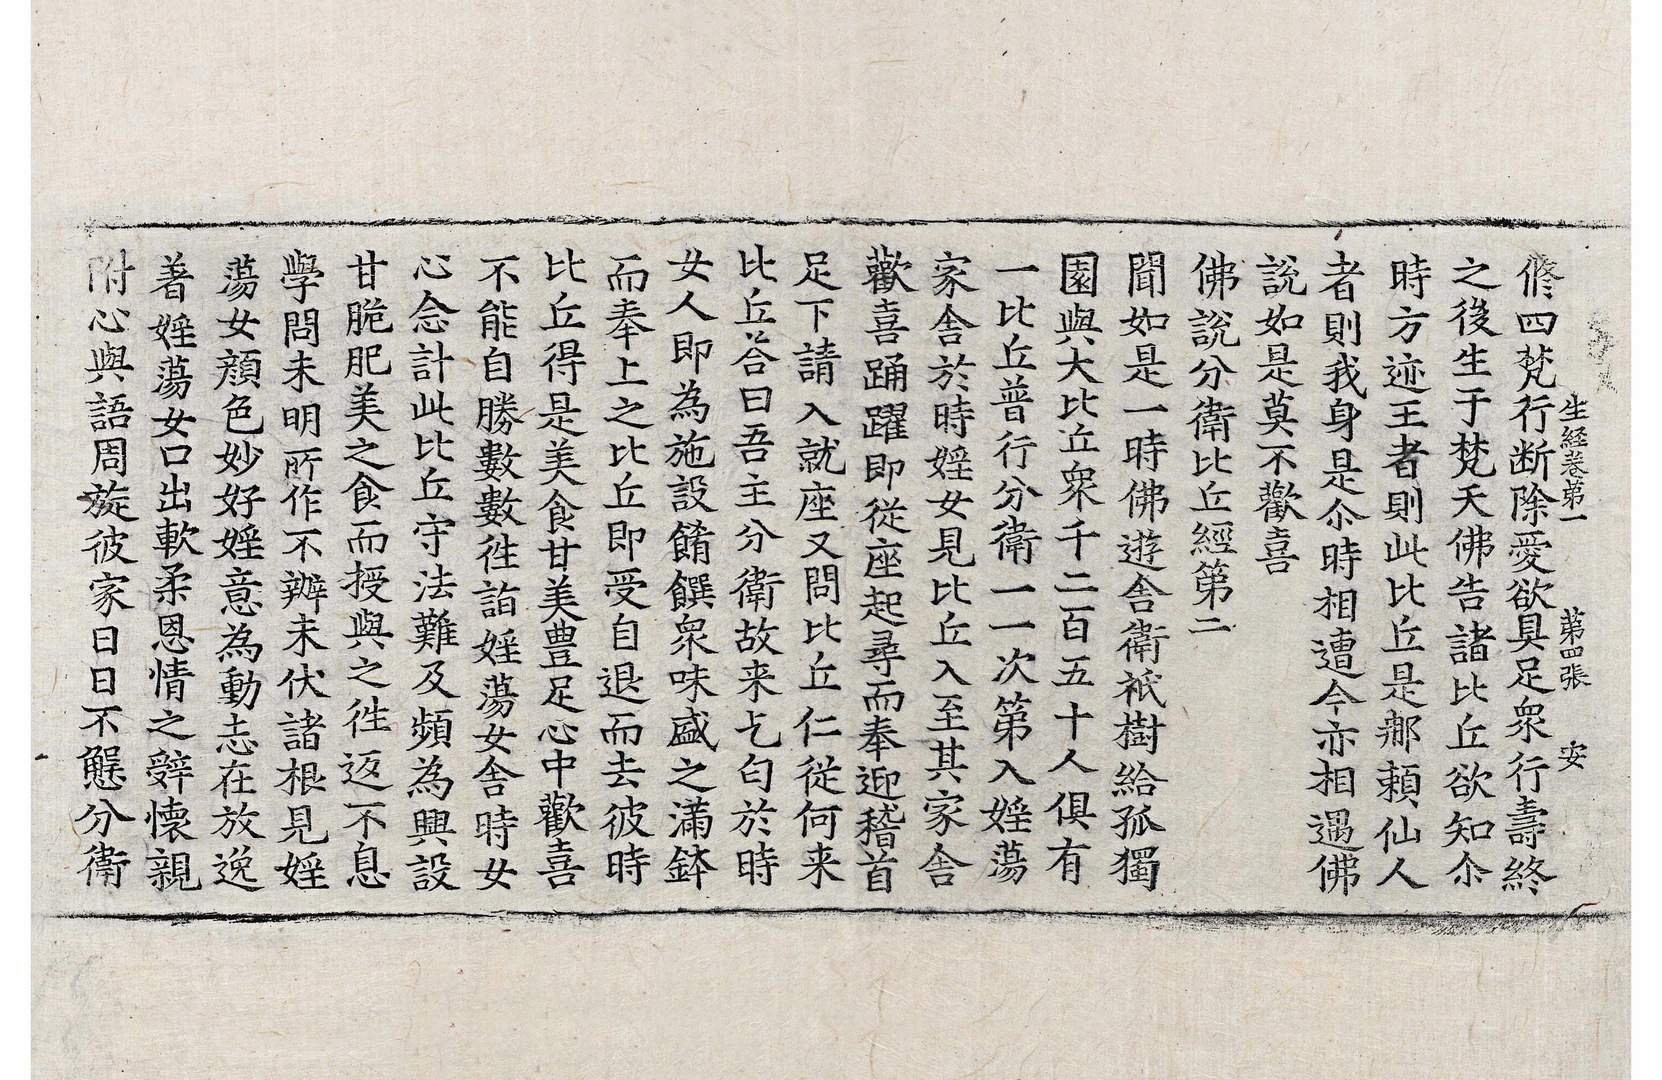 生経卷第一　第四張　安
修四梵行断除愛欲具足衆行壽終
之後生于梵天佛告諸比丘欲知尒
時方迹王者則此比丘是那頼仙人
者則我身是尒時相遭今亦相遇佛
說如是莫不歡喜
佛說分衛比丘經第二
聞如是一時佛遊舎衛祇樹給孤獨
園與大比丘衆千二百五十人俱有
一比丘普行分衛一一次第入婬蕩
家舎於時婬女見比丘入至其家舎
歡喜踊躍即從座起尋而奉迎稽首
足下請入就座又問比丘仁從何来
比丘荅曰吾主分衛故来乞匃於時
女人即為施設餚饌衆味盛之滿鉢
而奉上之比丘即受自退而去彼時
比丘得是美食甘美豊足心中歡喜
不能自勝數數徃詣婬蕩女舎時女
心念計此比丘守法難及頻為興設
甘脆肥美之食而授與之徃返不息
學問未明所作不辦未伏諸根見婬
蕩女顔色妙好婬意為動志在放逸
著婬蕩女口出軟柔恩情之辭懐親
附心與語周旋彼家日日不懈分衛